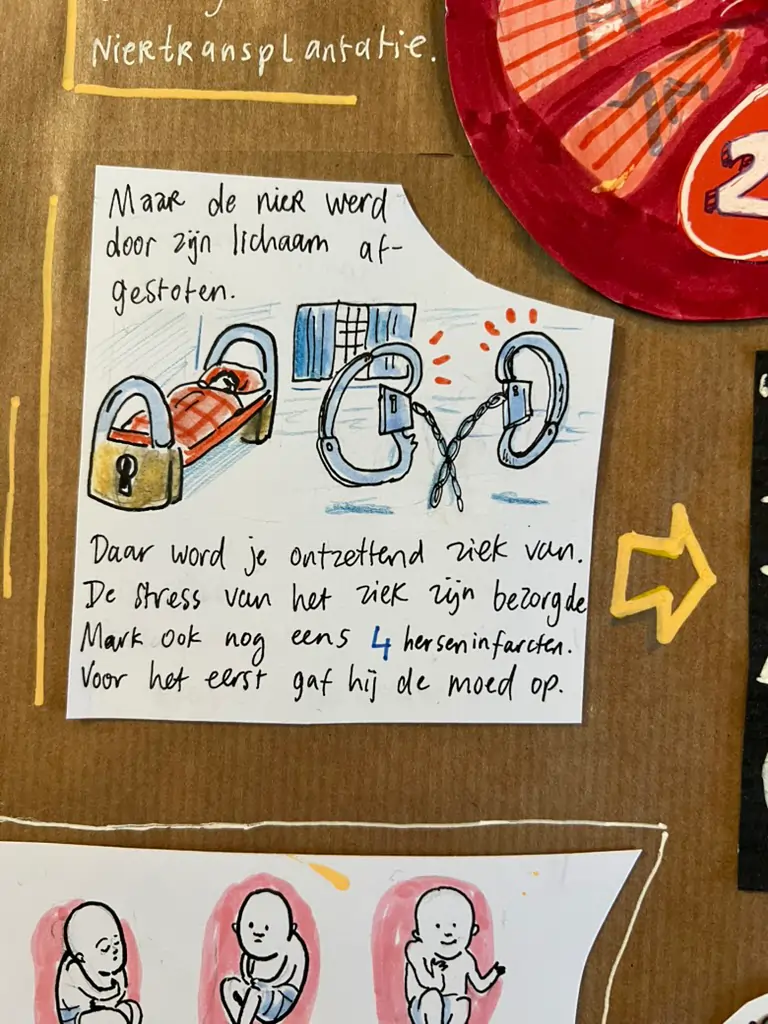 Niertransplantatie.
Maar de nier werd
door zijn lichaam af-
gestoten.
Daar word je ontzettend ziek van.
De stress van het ziek zijn bezorgde
Mark ook nog eens 4 herseninfarcten.
Voor het eerst gaf hij de moed op.
2